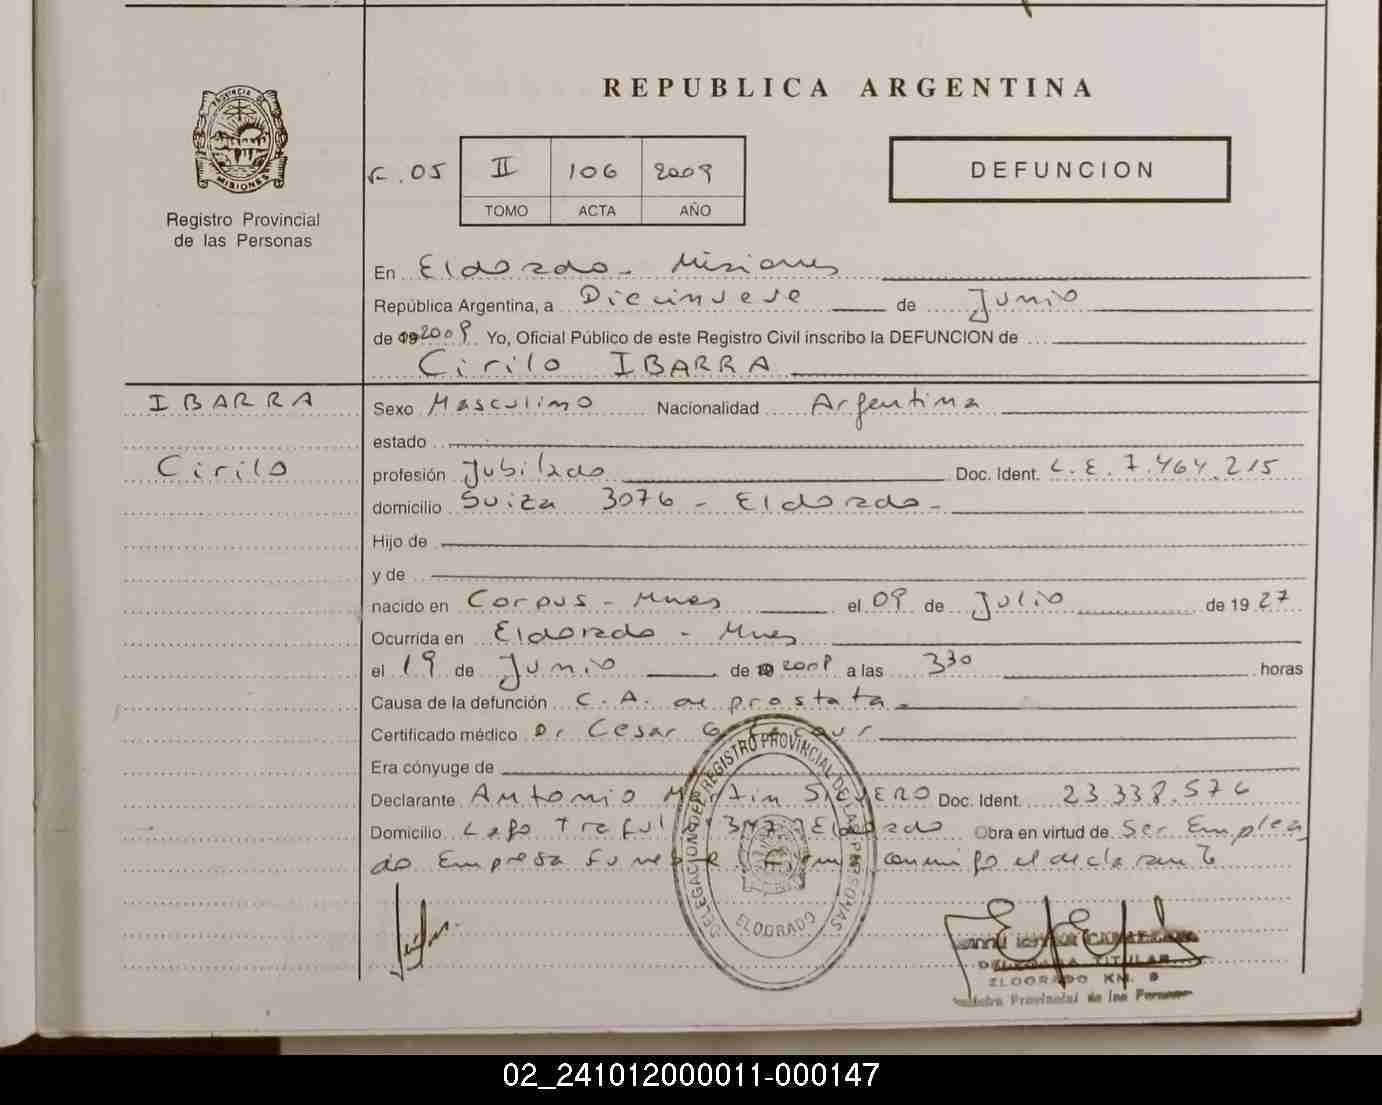 REPUBLICA ARGENTINA
PROVINCIA DE
MISIONES
Registro Provincial
de las Personas
F. 05
II 106 2009
TOMO ACTA AÑO
DEFUNCION
En Eldorado - Misiones
República Argentina, a Diecinueve de Junio
de 192009 Yo, Oficial Público de este Registro Civil inscribo la DEFUNCION de
Cirilo IBARRA
IBARRA
Cirilo
Sexo Masculino Nacionalidad Argentina
estado
profesión Jubilado Doc. Ident. L.E. 7.464.215
domicilio Suiza 3076 - Eldorado -
Hijo de
y de
nacido en Corpus - Mnes el 09 de Julio de 1927
Ocurrida en Eldorado - Mnes
el 19 de Junio de 2009 a las 330 horas
Causa de la defunción C.A. de prostata.
Certificado médico Dr Cesar G
Era cónyuge de
Declarante Antonio Martin Doc. Ident. 23.338.576
Domicilio Lago Traful Eldorado Obra en virtud de Ser Emplea
do Empresa Funebre Firma conmigo el declarante
DELEGACION DEL REGISTRO PROVINCIAL DE LAS PERSONAS
ELDORADO
DELEGADA TITULAR
ELDORADO KM. 9
Registro Provincial de las Personas
02_241012000011-000147